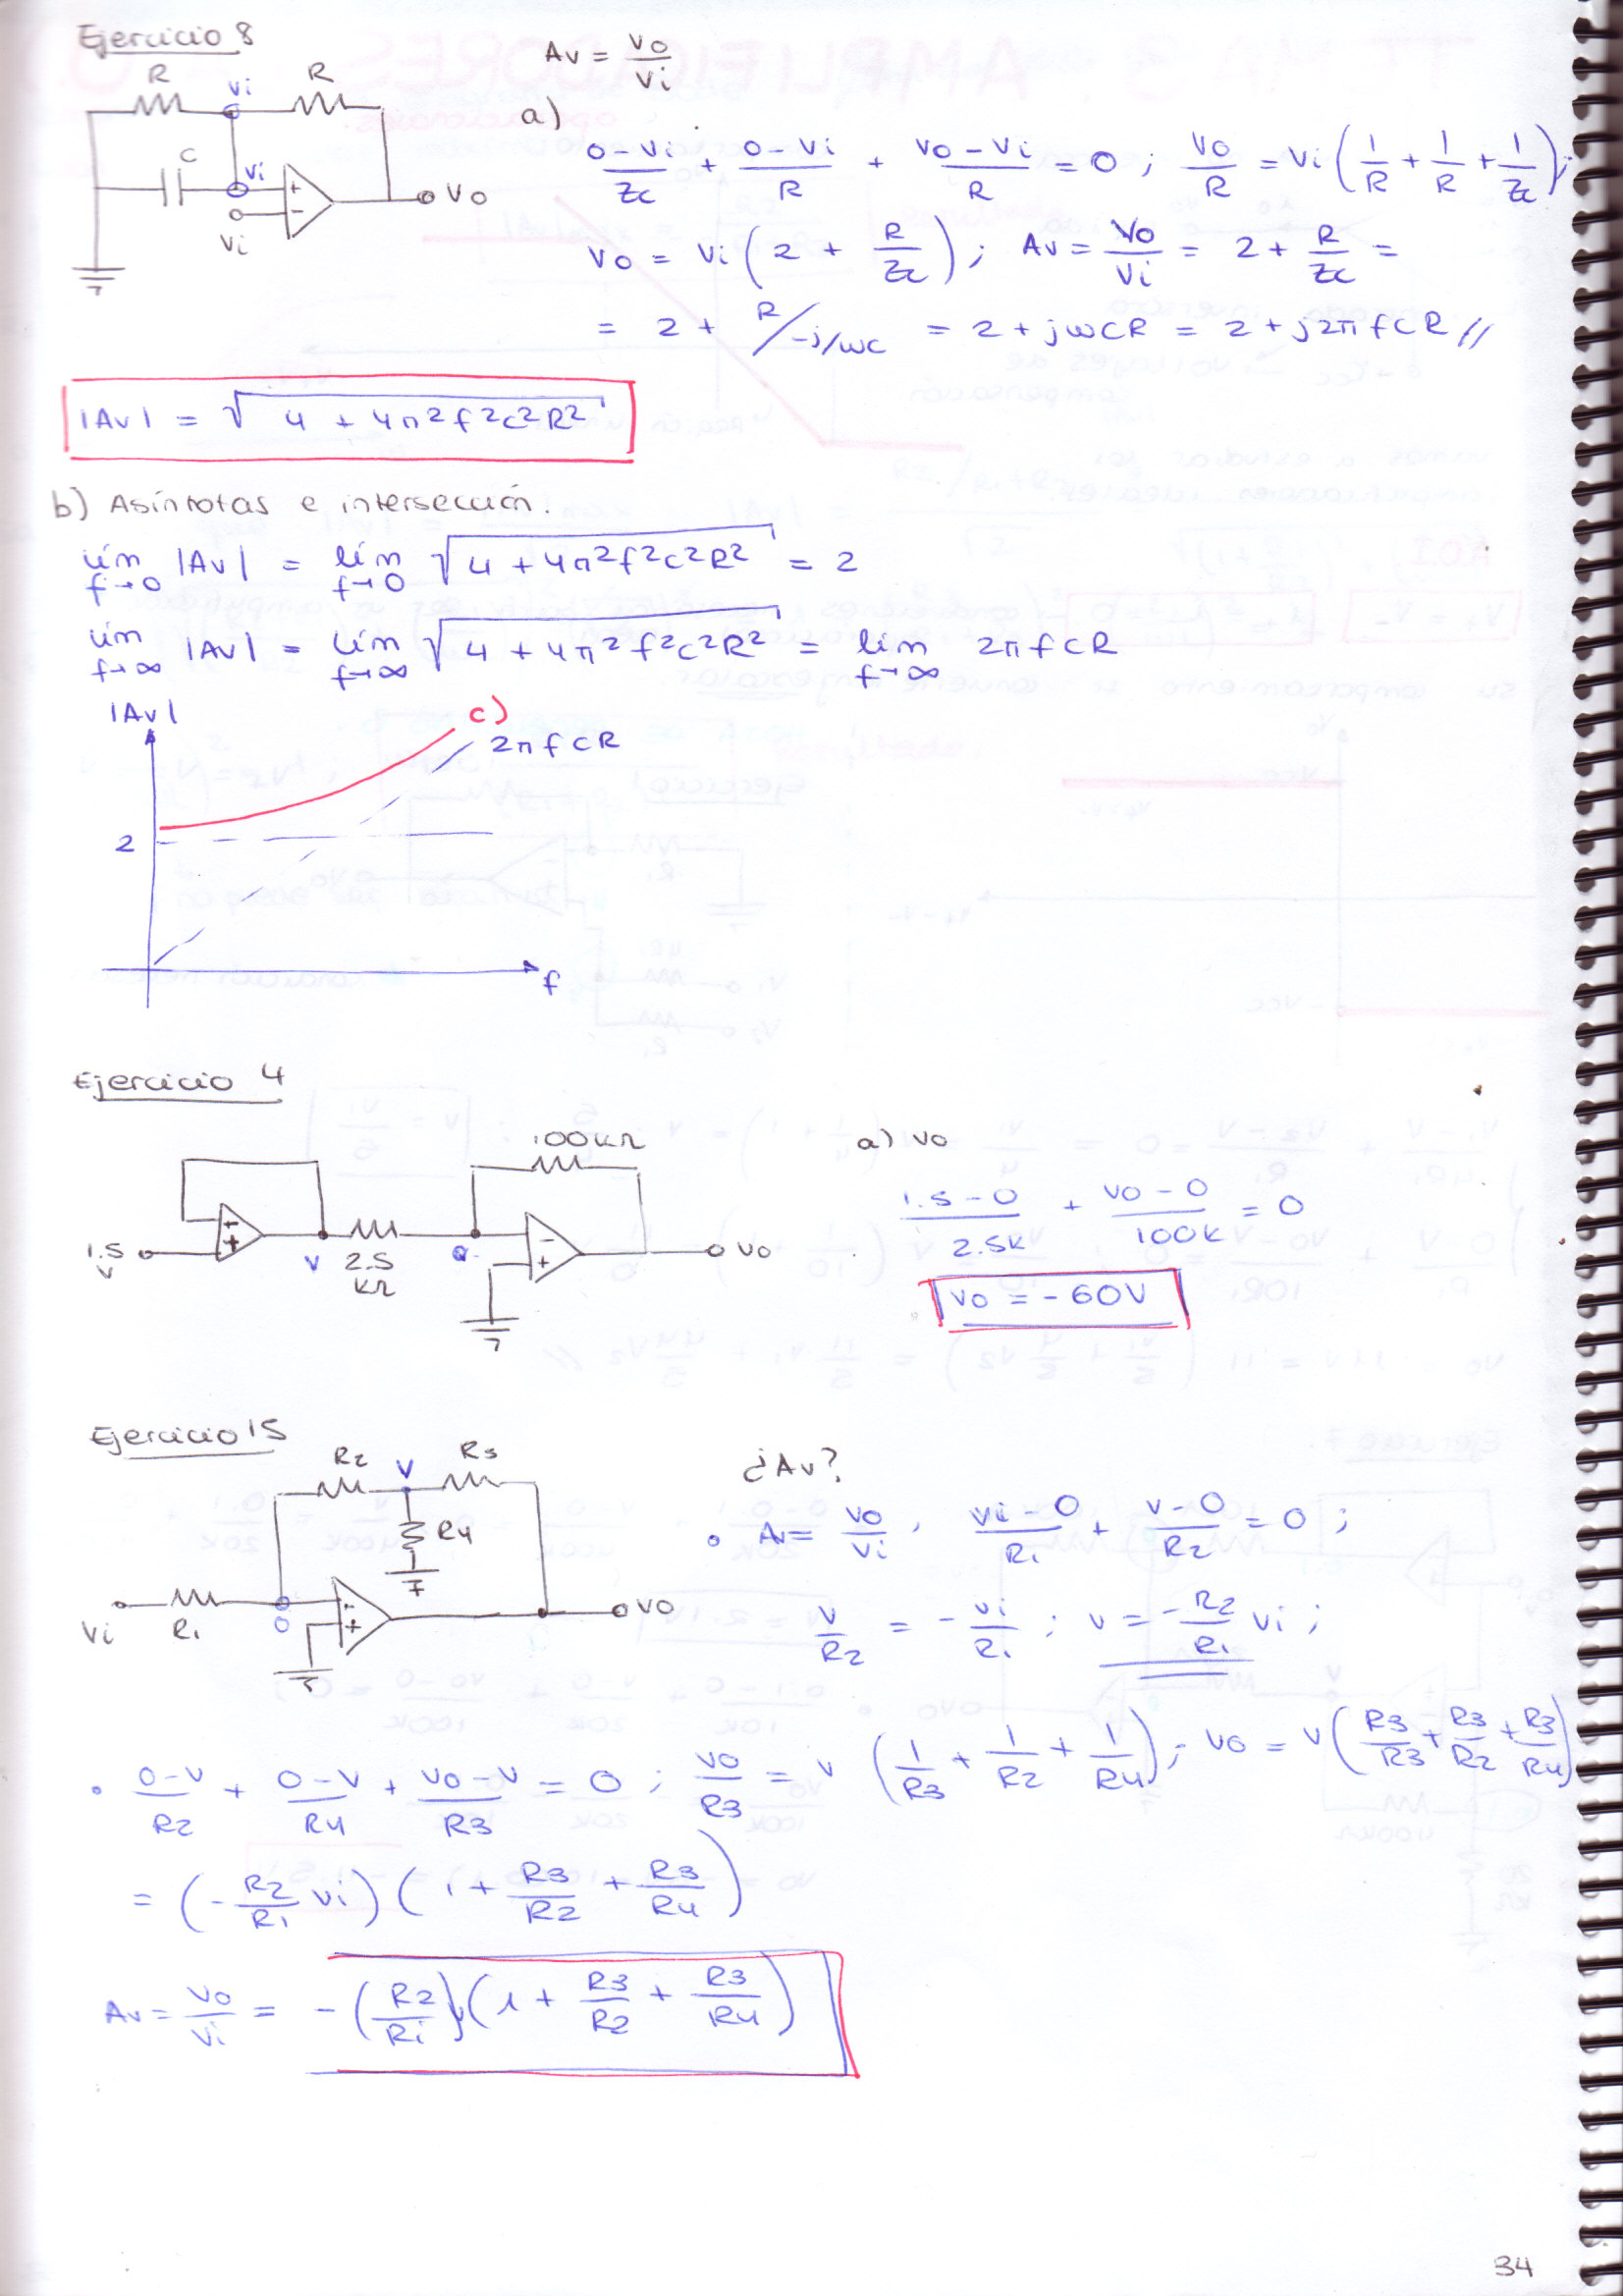 Ejercicio 8
R
Vi
R
C
Vi
+
-
Vo
Vi
Av = Vo/Vi
a)
(0-Vi)/Zc + (0-Vi)/R + (Vo-Vi)/R = 0 ; Vo/R = Vi (1/R + 1/R + 1/Zc);
Vo = Vi (2 + R/Zc); Av = Vo/Vi = 2 + R/Zc =
= 2 + R/-j/ωC = 2 + jωCR = 2 + j2πfCR //
|Av| = √(4 + 4π²f²C²R²)
b) Asíntotas e intersección.
lím f→0 |Av| = lím f→0 √(4 + 4π²f²C²R²) = 2
lím f→∞ |Av| = lím f→∞ √(4 + 4π²f²C²R²) = lím f→∞ 2πfCR
|Av|
c)
2πfCR
2
f
Ejercicio 4
100kΩ
1.5 V
V
2.5 kΩ
-
+
Vo
a) Vo
(1.5-0)/2.5k + (Vo-0)/100k = 0
Vo = -60V
Ejercicio 15
R2
V
R3
R4
Vi
R1
0
-
+
Vo
¿Av?
• Av = Vo/Vi , (Vi-0)/R1 + (V-0)/R2 = 0 ;
V/R2 = - Vi/R1 ; V = - R2/R1 Vi ;
• (0-V)/R2 + (0-V)/R4 + (Vo-V)/R3 = 0 ; Vo/R3 = V (1/R3 + 1/R2 + 1/R4); Vo = V (R3/R3 + R3/R2 + R3/R4)
= (- R2/R1 Vi) (1 + R3/R2 + R3/R4)
Av = Vo/Vi = - (R2/R1) (1 + R3/R2 + R3/R4)
34